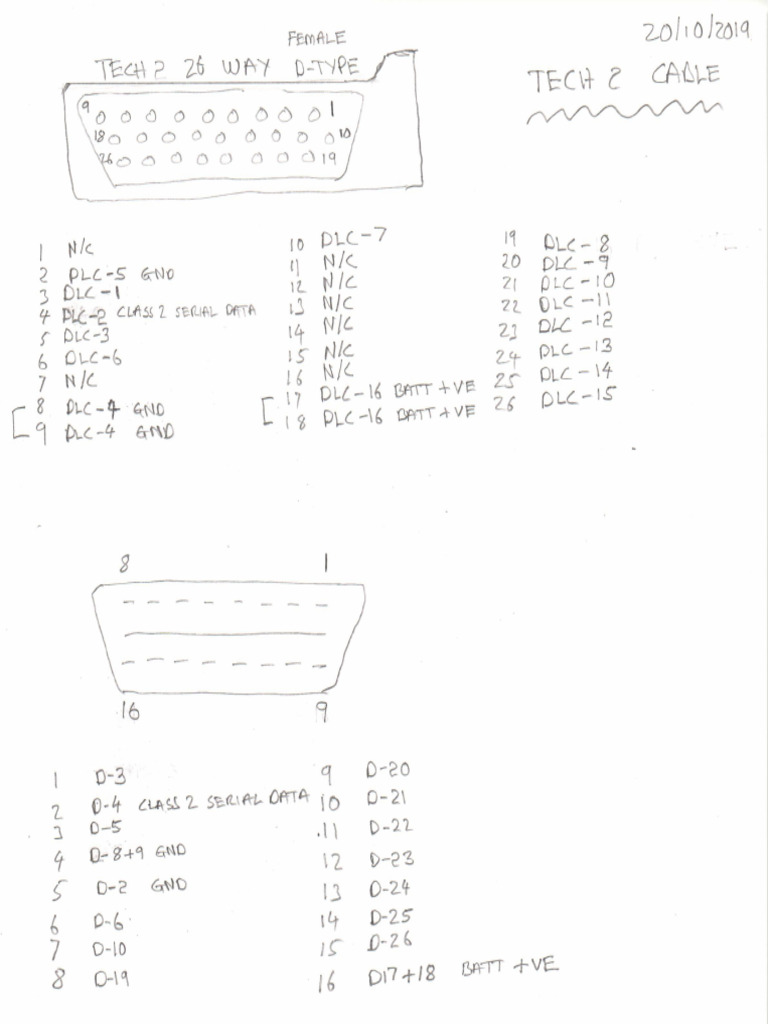 20/10/2019
FEMALE
TECH 2 26 WAY D-TYPE
TECH 2 CABLE
9 1
18 10
26 19
1 N/C
2 DLC-5 GND
3 DLC-1
4 DLC-2 CLASS 2 SERIAL DATA
5 DLC-3
6 DLC-6
7 N/C
8 DLC-4 GND
9 DLC-4 GND
10 DLC-7
11 N/C
12 N/C
13 N/C
14 N/C
15 N/C
16 N/C
17 DLC-16 BATT +VE
18 DLC-16 BATT +VE
19 DLC-8
20 DLC-9
21 DLC-10
22 DLC-11
23 DLC-12
24 DLC-13
25 DLC-14
26 DLC-15
8 1
16 9
1 D-3
2 D-4 CLASS 2 SERIAL DATA
3 D-5
4 D-8+9 GND
5 D-2 GND
6 D-6
7 D-10
8 D-19
9 D-20
10 D-21
11 D-22
12 D-23
13 D-24
14 D-25
15 D-26
16 D17+18 BATT +VE